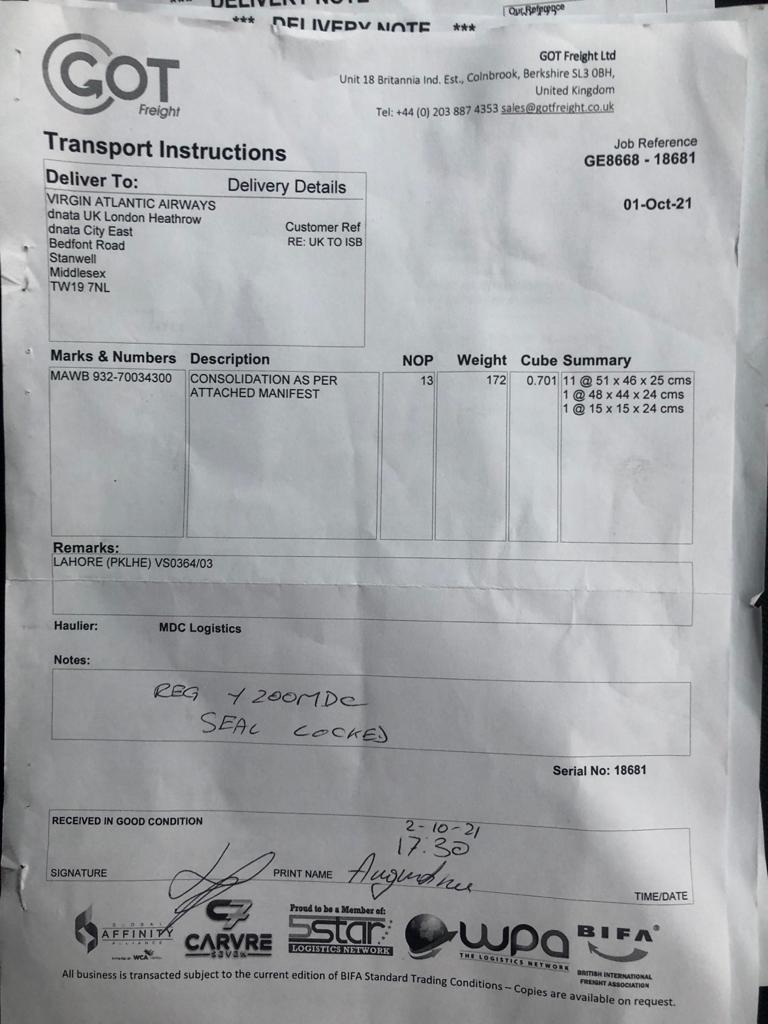 *** DELIVERY NOTE
*** DELIVERY NOTE ***
Our Reference
GOT
Freight
GOT Freight Ltd
Unit 18 Britannia Ind. Est., Colnbrook, Berkshire SL3 0BH,
United Kingdom
Tel: +44 (0) 203 887 4353 sales@gotfreight.co.uk
Transport Instructions
Job Reference
GE8668 - 18681
01-Oct-21
Deliver To: Delivery Details
VIRGIN ATLANTIC AIRWAYS
dnata UK London Heathrow
dnata City East Customer Ref
Bedfont Road RE: UK TO ISB
Stanwell
Middlesex
TW19 7NL
Marks & Numbers Description NOP Weight Cube Summary
MAWB 932-70034300 CONSOLIDATION AS PER 13 172 0.701 11 @ 51 x 46 x 25 cms
ATTACHED MANIFEST 1 @ 48 x 44 x 24 cms
1 @ 15 x 15 x 24 cms
Remarks:
LAHORE (PKLHE) VS0364/03
Haulier: MDC Logistics
Notes:
REG Y200MDC
SEAL LOCKED
Serial No: 18681
RECEIVED IN GOOD CONDITION
2-10-21
17:30
SIGNATURE PRINT NAME
TIME/DATE
GLOBAL
AFFINITY
ALLIANCE
WCA
C7
CARVRE
SEVEN
Proud to be a Member of:
5star
LOGISTICS NETWORK
wpa
THE LOGISTICS NETWORK
BIFA
BRITISH INTERNATIONAL
FREIGHT ASSOCIATION
All business is transacted subject to the current edition of BIFA Standard Trading Conditions – Copies are available on request.